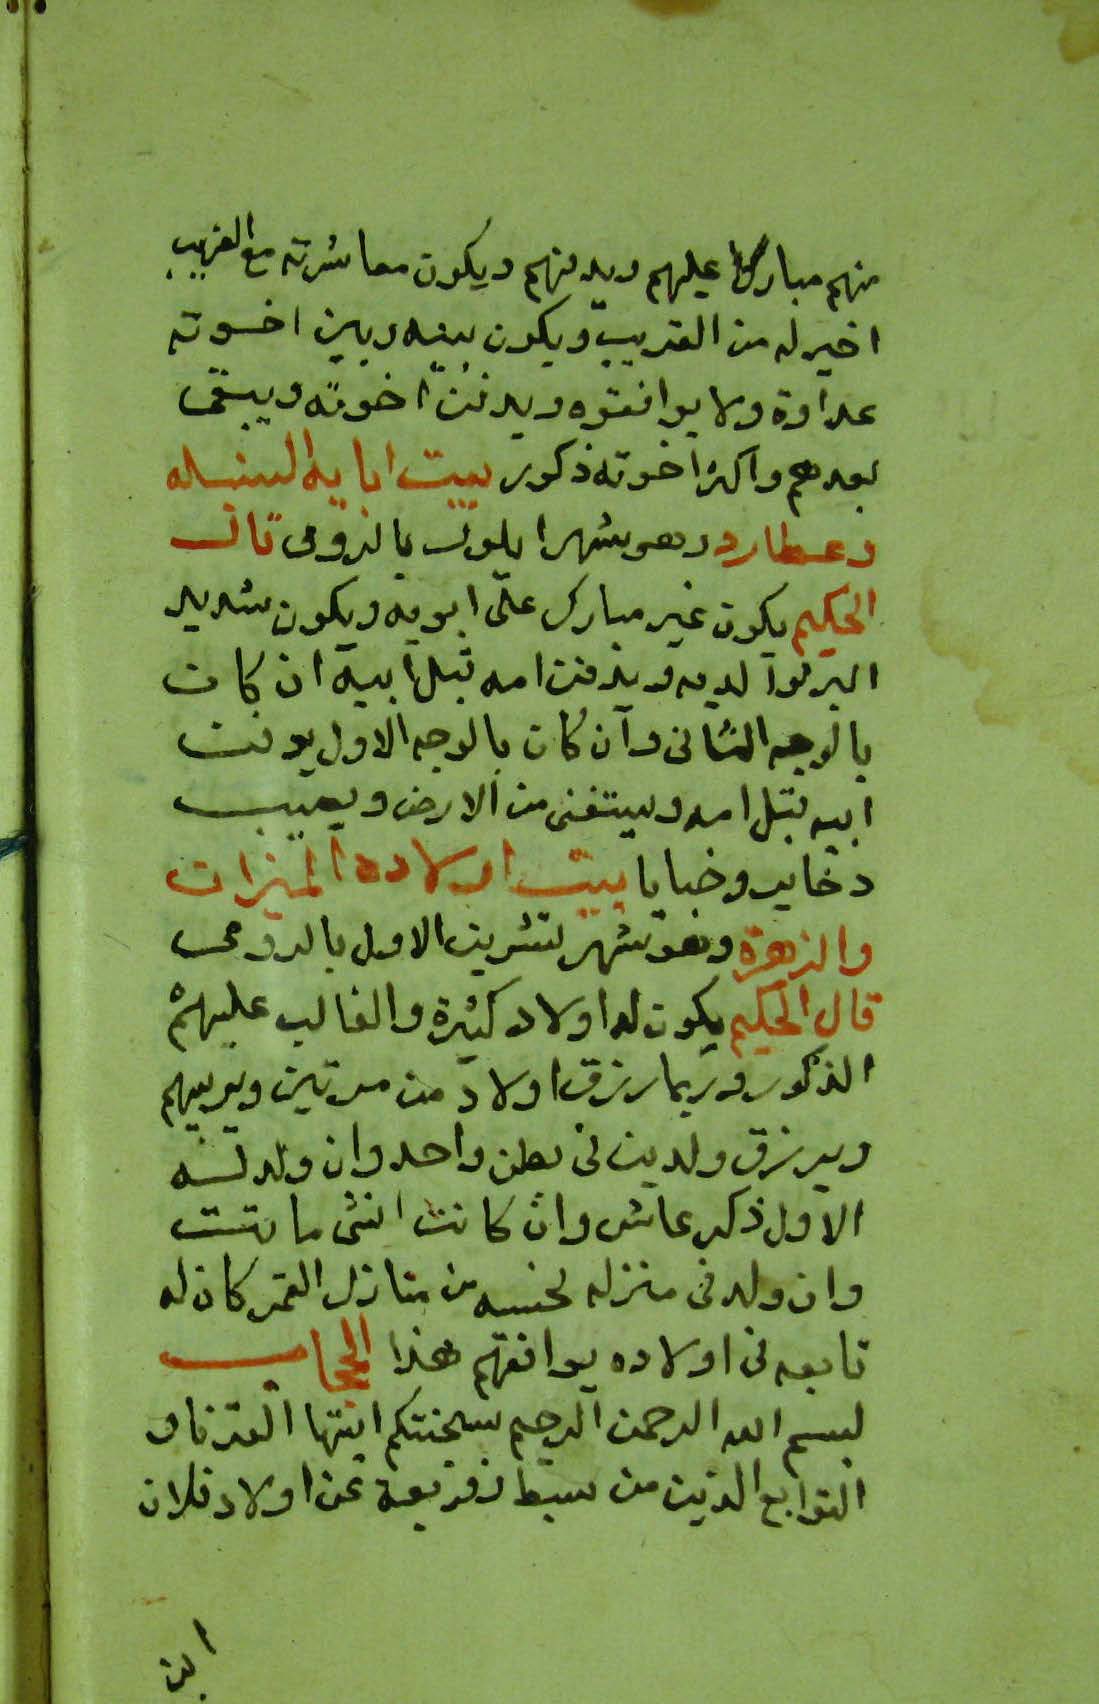 منهم مباركا عليهم ويدفنهم ويكون معاشرته مع الغريب
اخير له من القريب ويكون بينه وبين اخوته
عداوة ولا يوافقوه ويدفن اخوته ويبقى
بعدهم واكثر اخوته ذكور بيت ابايه السنبله
وعطارد وهو شهر ايلول بالرومى قال
الحكيم يكون غير مبارك على ابويه ويكون شديد
البر لوالديه ويدفن امه قبل ابيه ان كان
بالوجه الثانى وان كان بالوجه الاول يدفن
ابيه قبل امه ويستغنى من الارض ويصيب
دخاير وخبايا بيت اولاده الميزان
والزهرة وهو شهر تشرين الاول بالرومى
قال الحكيم يكون له اولاد كثيرة والغالب عليهم
الذكور وربما رزق اولاد من مرتين ويربيهم
ويرزق ولدين فى بطن واحد وان ولد له
الاول ذكر عاش وان كانت انثى ماتت
وان ولد فى منزله نحسه من منازل القمر كان له
تابعه فى اولاده يوافقهم هذا الحجاب
بسم الله الرحمن الرحيم ايتها القرناو
التوابع الذين من عن اولاد فلان
ابن